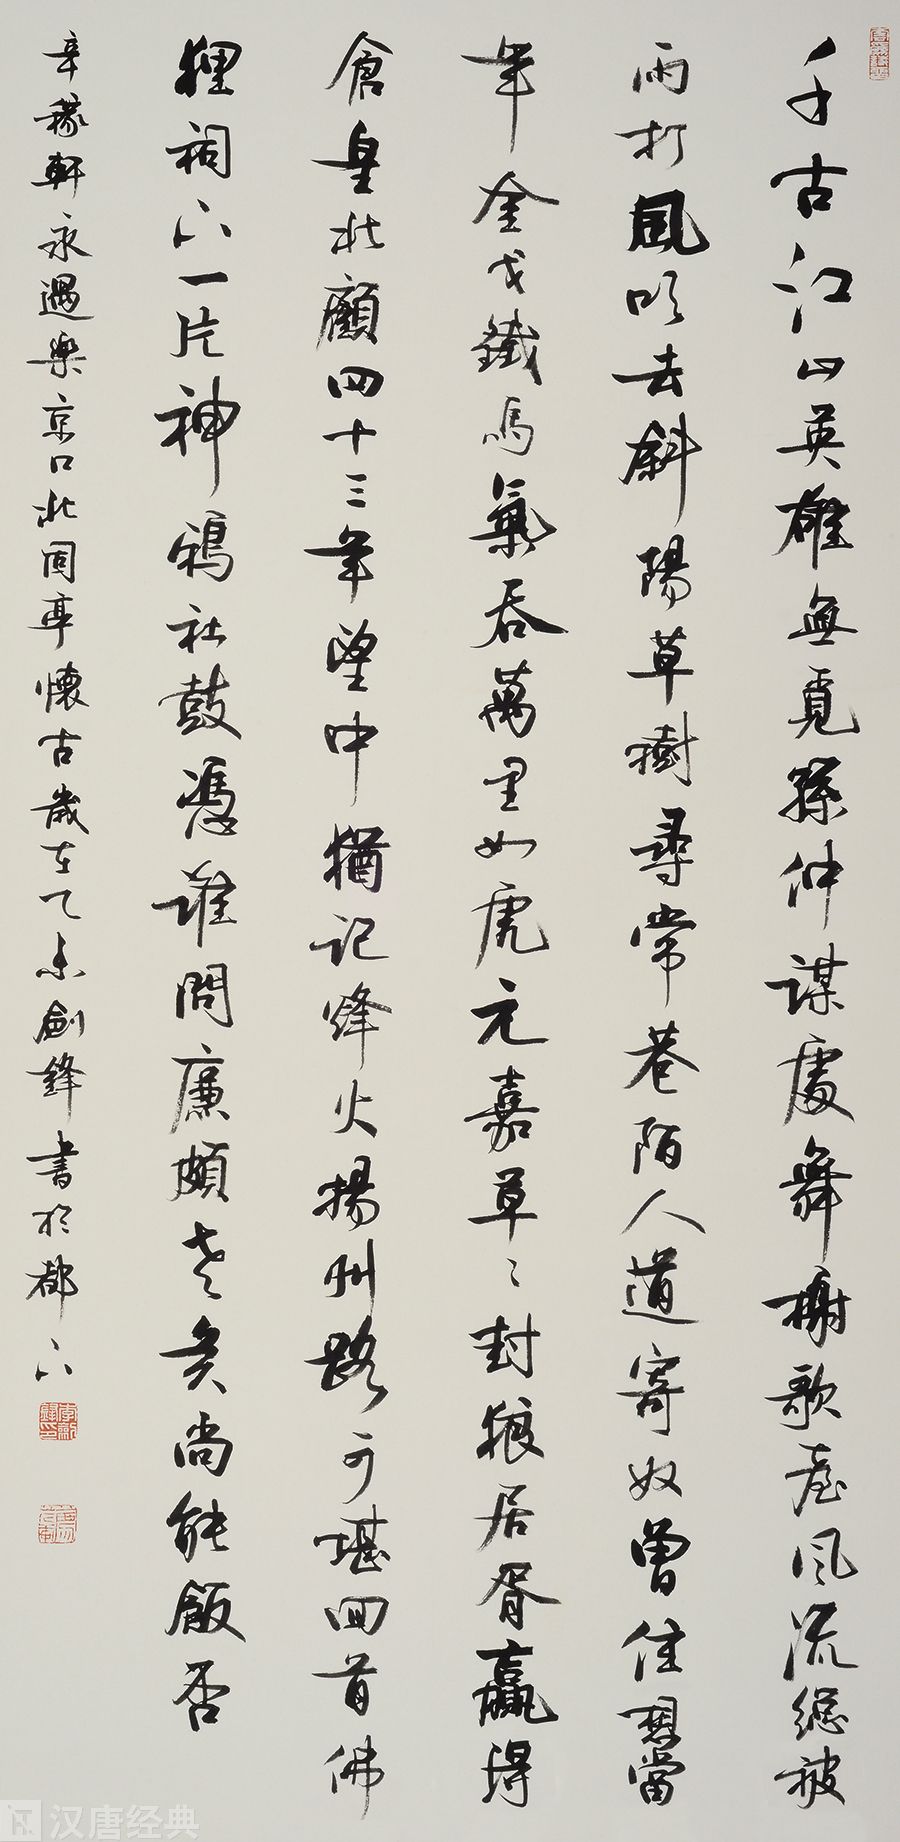 千古江山英雄無覓孫仲謀處舞榭歌臺風流總被
雨打風吹去斜陽草樹尋常巷陌人道寄奴曾住想當
年金戈鐵馬氣吞萬里如虎元嘉草〻封狼居胥贏得
倉皇北顧四十三年望中猶記烽火揚州路可堪回首佛
狸祠下一片神鴉社鼓憑誰問廉頗老矣尚能飯否
辛稼軒永遇樂京口北固亭懷古歲在乙未劍鋒書於都下
汉唐经典